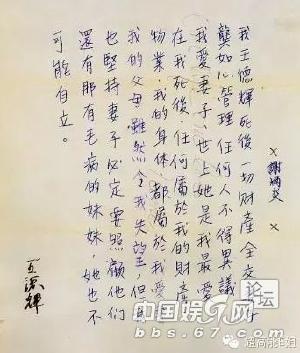 x 謝炳炎 x
我王德輝死後一切財產全交
龔如心管理任何人不得異議
我愛妻子世上她是我最愛
在我死後任何屬於我的財產
物業我的身体都屬於我愛
我的父母雖然令我失望但
也堅持妻子必定要照顧他們
還有那有毛病的妹妹她也不
可能自立。
王德輝
中国娱乐网
论坛
bbs.67.com